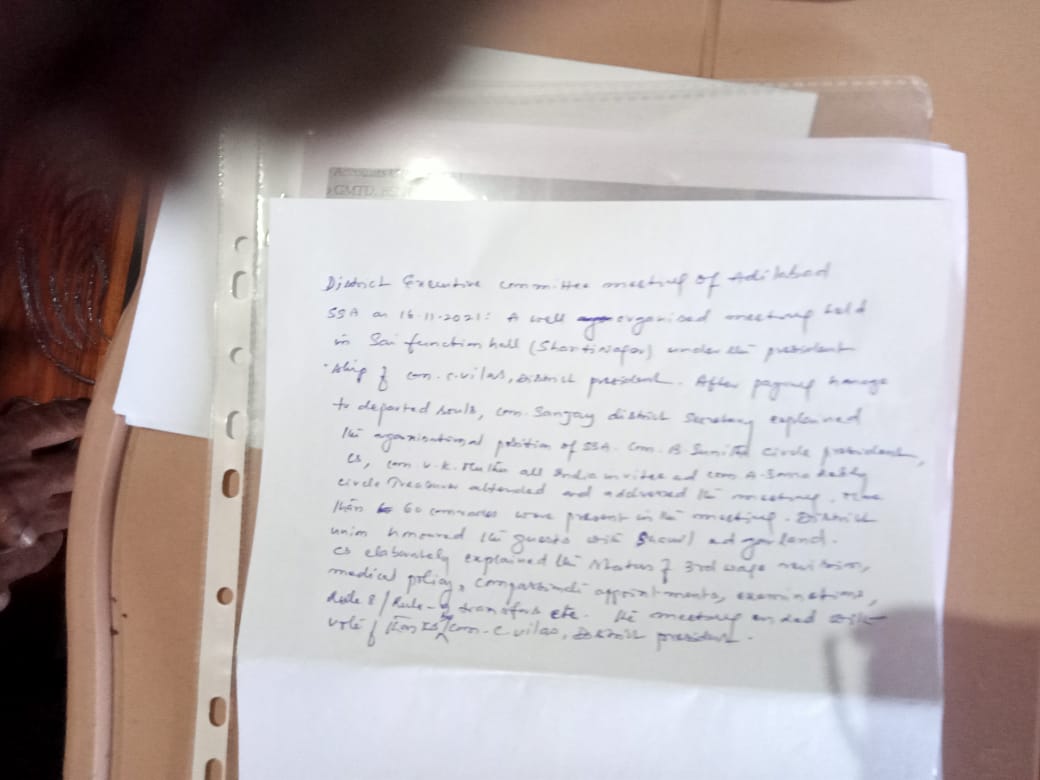 Accounts
GMTD,
District Executive committee meeting of Adilabad
SSA on 16.11.2021: A well organised meeting held
in Sai function hall (Shantinagar) under the president
ship of com. C. Vilas, District president. After paying homage
to departed souls, com. Sanjay district Secretary explained
the organisational position of SSA. Com. B. Sunitha Circle president,
CS, com. V.K. all India invitee ad com A. Sama Reddy
circle Treasurer attended and addressed the meeting. More
than 60 comrades were present in the meeting. District
union honoured the guests with Shawl ad garland.
CS elaborately explained the status of 3rd wage revision,
medical policy, compassionate appointments, examinations,
Rule 8/Rule-9 transfers etc. The meeting ended with
vote of thanks by com. C. Vilas, District president.